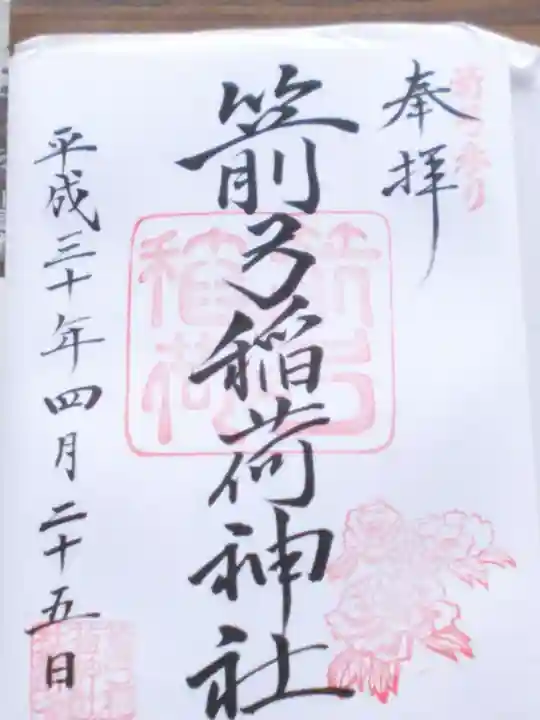 奉拝
箭弓稲荷神社
平成三十年四月二十五日
箭弓稲荷